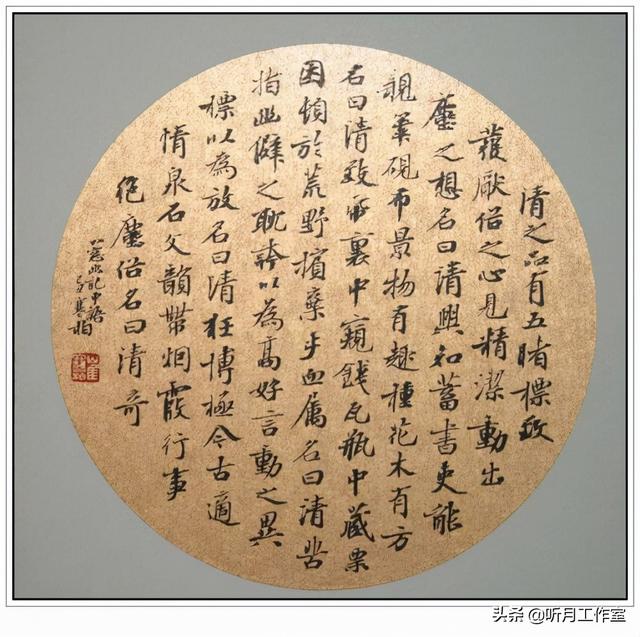 清之品有五睹標致
厭俗之心見精潔動出
塵之想名曰清興知蓄書史能
親筆硯布景物有趣種花木有方
名曰清致帋裏中窺錢瓦瓶中藏粟
困頓於荒野擯棄乎血屬名曰清苦
指幽僻之耽誇以為高好言動之異
標以為放名曰清狂博極今古適
情泉石文韻帶烟霞行事
絕塵俗名曰清奇
小窓幽記中語
头条 @听月工作室